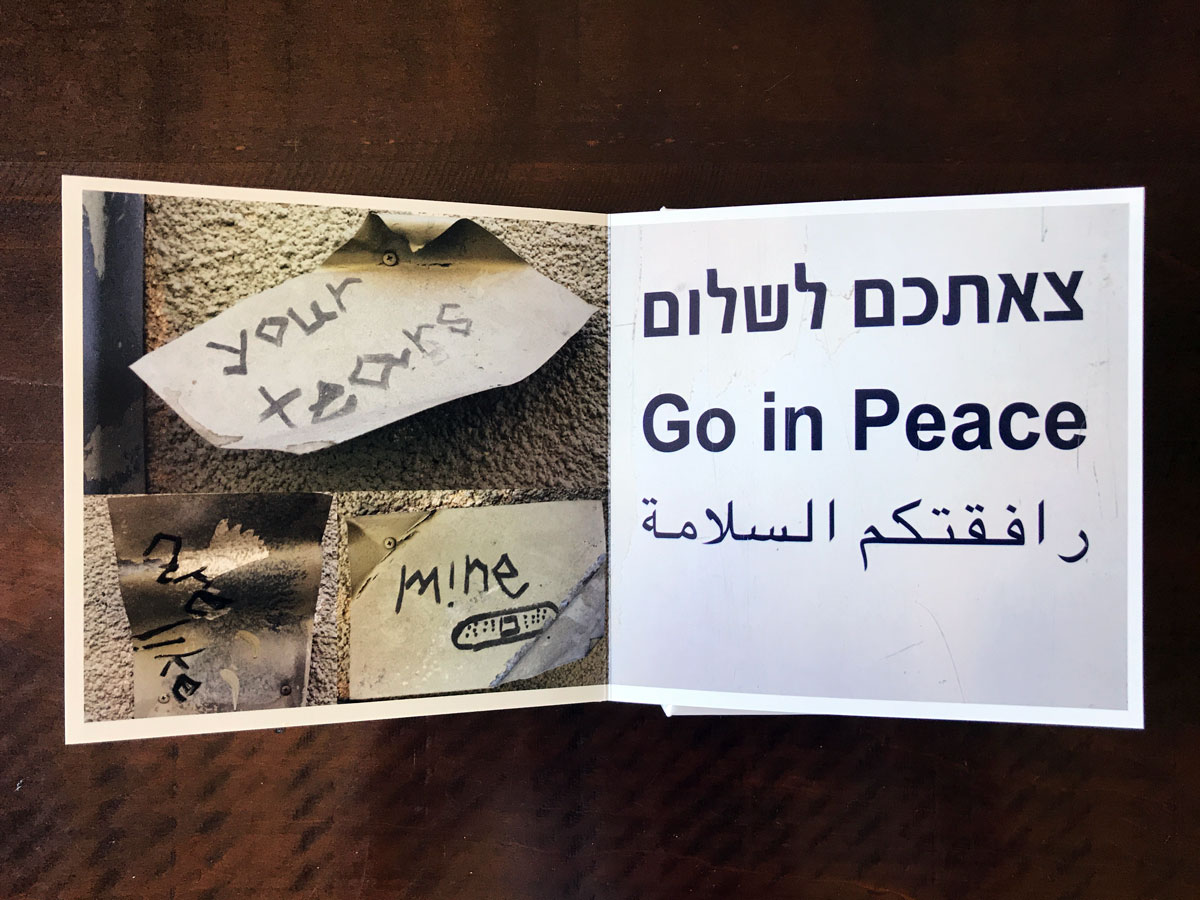 your
tears
are
like
mine
צאתכם לשלום
Go in Peace
رافقتكم السلامة